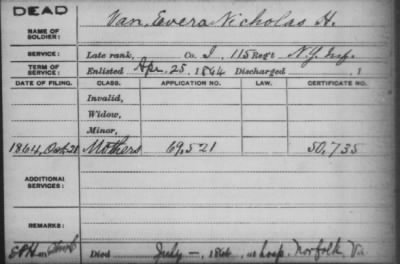 DEAD
NAME OF SOLDIER: Van Evera Nicholas H.
SERVICE: Late rank, Co. I, 115 Regt N.Y. Inf.
TERM OF SERVICE: Enlisted Apr. 25, 1864 Discharged , 1
DATE OF FILING. CLASS. APPLICATION NO. LAW. CERTIFICATE NO.
Invalid,
Widow,
Minor,
1864, Oct. 21 Mothers 69,521 50,735
ADDITIONAL SERVICES:
REMARKS:
Died July —, 186 , at hosp. Norfolk Va.